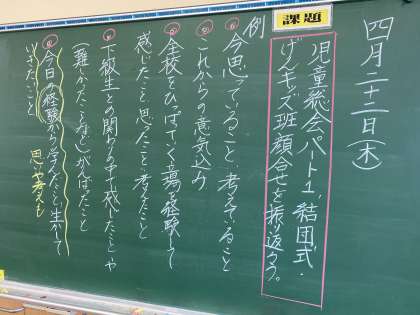 四月二十二日(木)
課題
児童総会パート1 結団式・
げんキッズ班顔合せを振り返ろう。
例
今思っていること、考えていること
これからの意気込み
全校をひっぱていく立場を経験して
感じたこと 思ったこと 考えたこと
下級生との関わりの中で感じたことや
(難しかったことなど)がんばったこと
今日の経験から学んだことを生かして
いきたいこと
思いや考えも